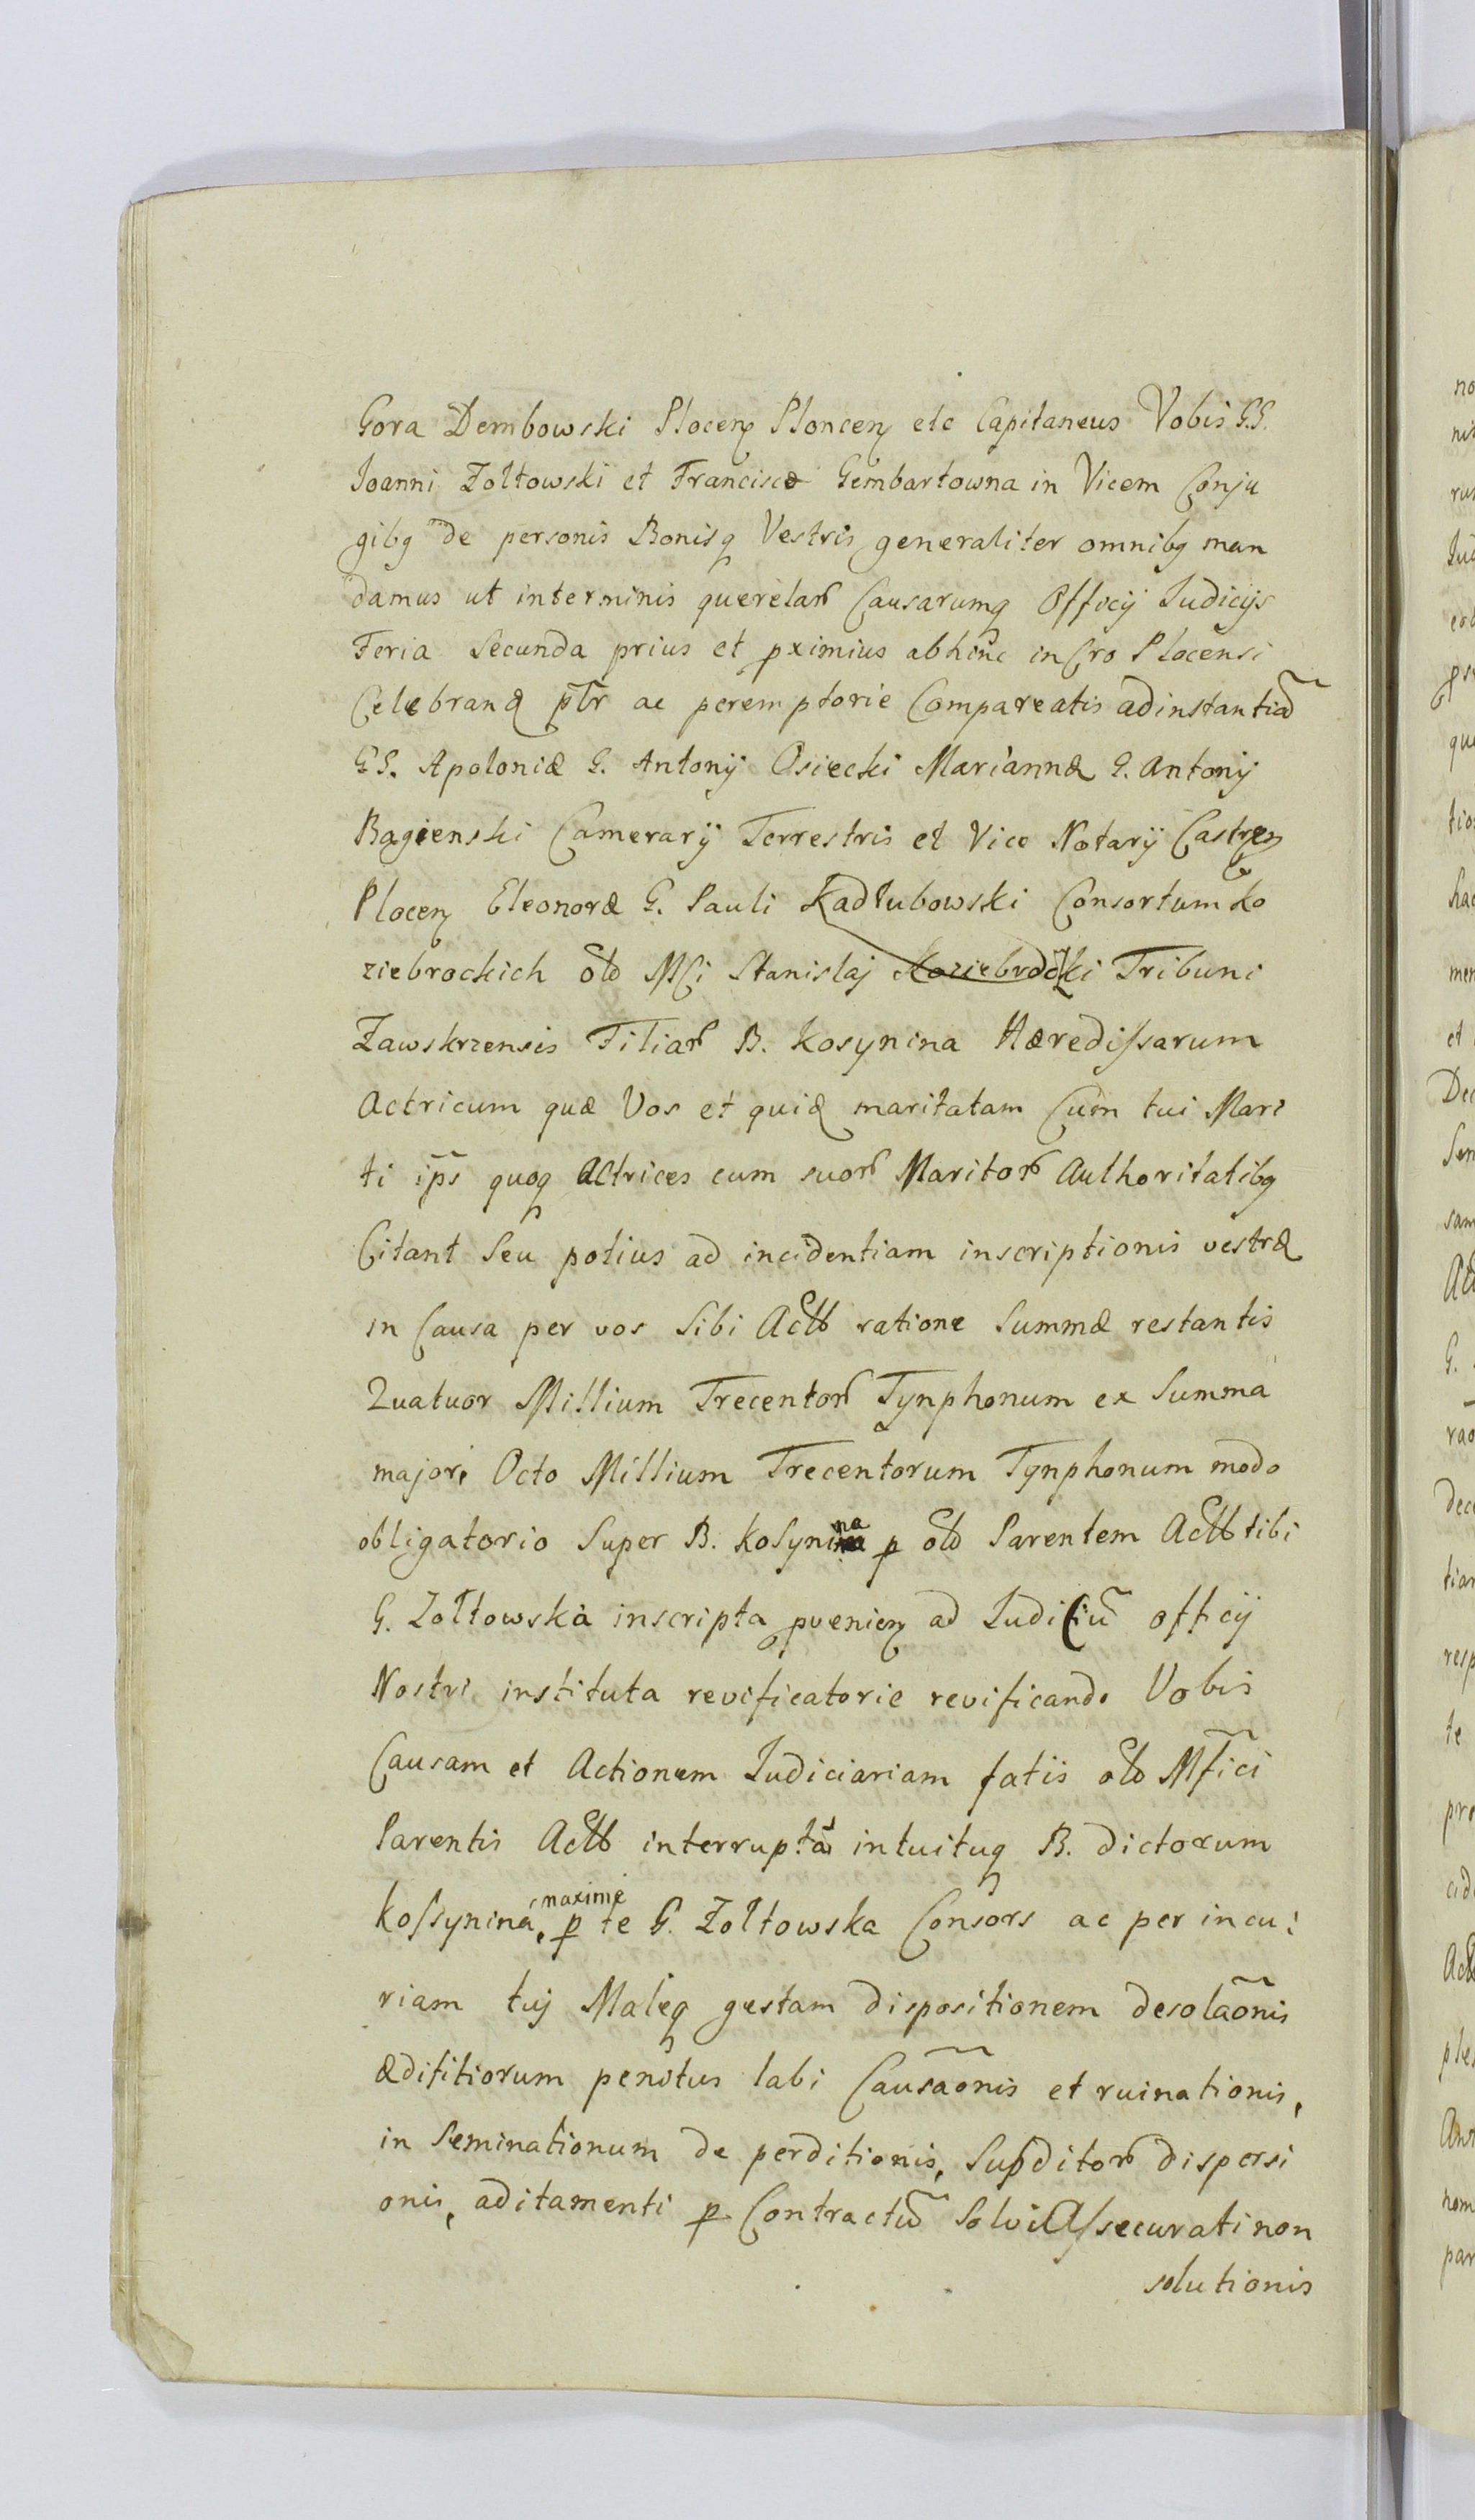 Gora Dembowski Plocen Ploncen etc Capitaneus Vobis GG.
Joanni Zołtowski et Franciscæ Gembartowna in Vicem Conju
gibq de personis Bonisq Vestris generaliter omnibq man
damus ut interminis querelar Causarumq Officij Judicijs
Feria Secunda prius et pximius abhinc in Cro Plocensi
Celebrand ptr ac peremptorie Compareatis adinstantia
GG. Apoloniæ G. Antonij Osiecki Mariannæ G. Antonij
Bagienski Camerarij Terrestris et Vice Notarij Castren
Plocen Eleonoræ G. Pauli Kadłubowski Consortum Ko
ziebrockich olo Mci Stanislaj Koziebrocki Tribuni
Zawskrzensis Filiar B. Kosynina Hæredissarum
Actricum quæ Vos et quid maritatam Cum tui Mari
ti ips quoq Actrices cum suor Maritor Authoritatibq
Citant Seu potius ad incidentiam inscriptionis vestræ
in Causa per vos Sibi Actb ratione Summæ restantis
Quatuor Millium Trecentor Tynphonum ex Summa
majori Octo Millium Trecentorum Tynphonum modo
obligatorio Super B. Kosynina p olo Parentem Actb tibi
G. Zołtowska inscripta pvenien ad Judiciu officij
Nostri instituta revificatorie revificando Vobis
Causam et Actionem Judiciariam fatis olo Mfici
Parentis Actb interrupta intuituq B. dictorum
Kossynina, maxime p te G. Zołtowska Consors ac per incu:
riam tuj Maleq gestam dispositionem desolaonis
ædifitiorum penitus labi Causaonis et ruinationis,
in Seminationum de perditionis, Supditor dispersi
onis, aditamenti p Contractu Solvi Assecurati non
solutionis